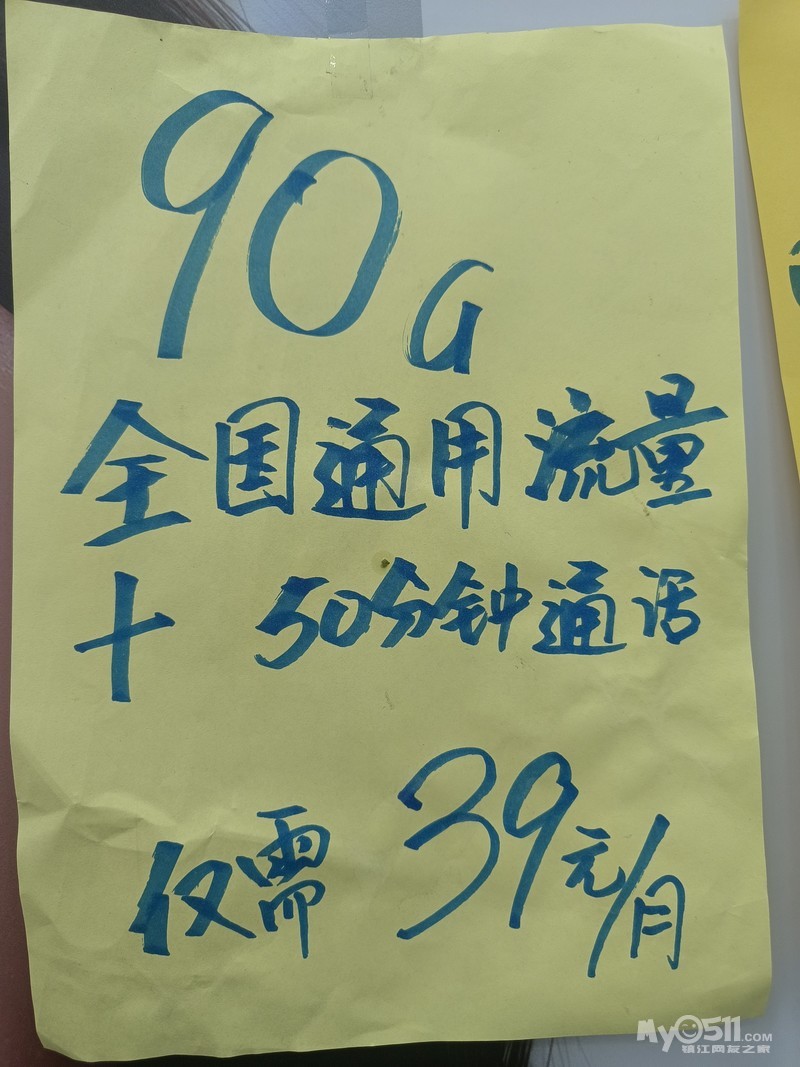 90G
全国通用流量
+ 50分钟通话
仅需 39元/月
My0511.COM
镇江网友之家